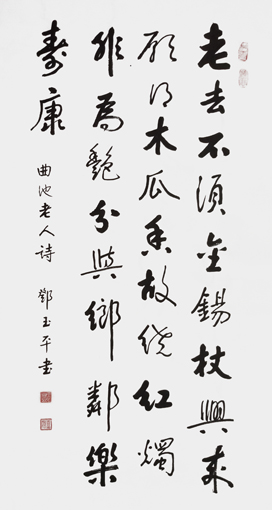 老去不須金錫杖興來
願得木瓜香故繞紅燭
非為艷分與鄉鄰樂
壽康
曲池老人詩 鄧玉平書